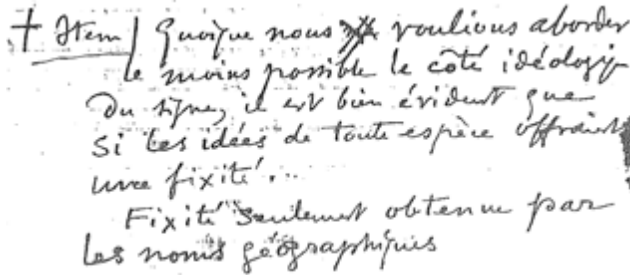 + Item] Quoique nous voulions aborder
le moins possible le côté idéologiq
du signe, il est bien évident que
si les idées de toute espèce offraient
une fixité...
Fixité seulement obtenue par
les noms géographiques